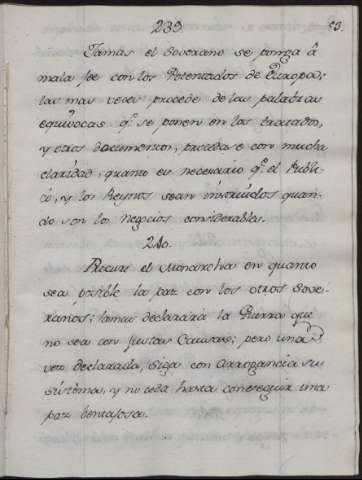 239.
53.
Jamas el Soverano se ponga á
mala fe con los Potentados de Europa;
las mas veces procede de las palabras
equivocas qᵉ se ponen en los tratados,
y otros documentos, procedase con mucha
claridad, quanto es necesario qᵉ el Publi-
co, y los Reynos sean instruidos quan-
do son los Negocios considerables.
240.
Procure el Monarcha en quanto
sea posible la paz con los otros Sove-
ranos; Jamas declarará la Guerra que
no sea con Justas Causas; pero una
vez declarada, siga con arrogancia su
sistema, y no ceda hasta conseguir una
paz bentajosa.